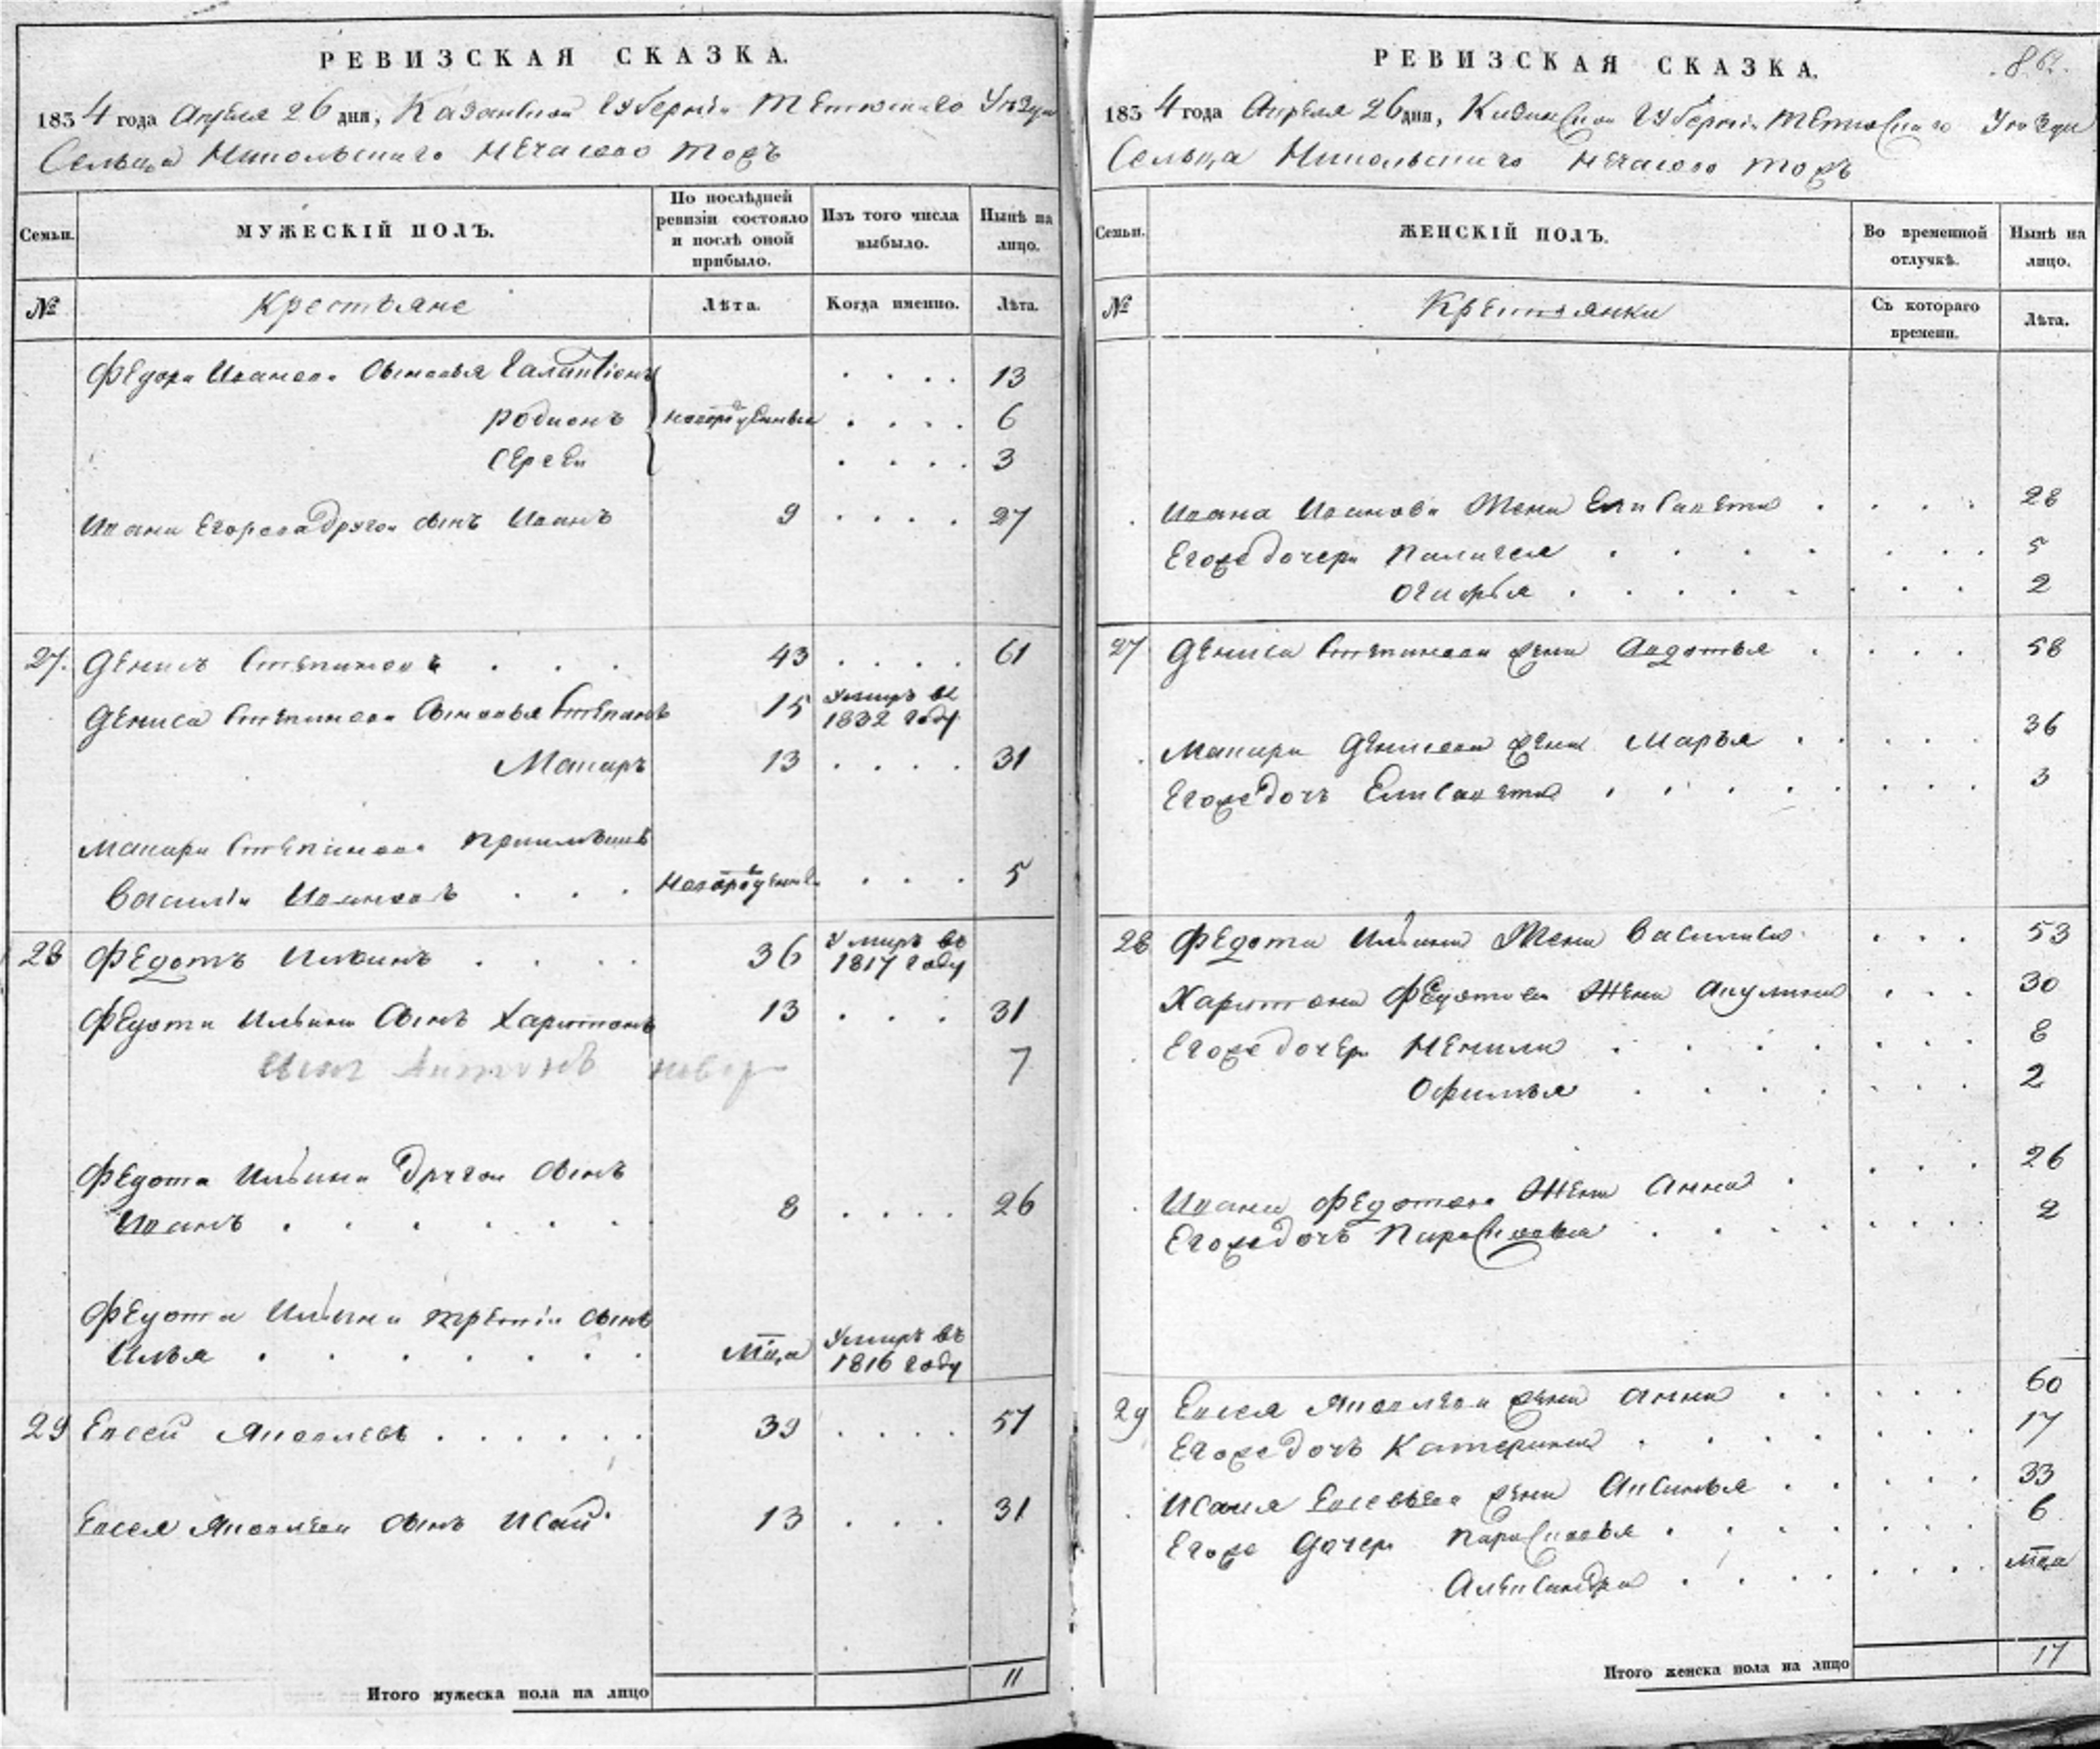 РЕВИЗСКАЯ СКАЗКА.
1834 года Апреля 26 дня, Казанской Губернiи Тетюшскаго Уезда
Сельца Никольскаго Нечасово тожъ
Семьи. МУЖЕСКІЙ ПОЛЪ. По послѣдней ревизіи состояло и послѣ оной прибыло. Изъ того числа выбыло. Нынѣ на лицо.
№ Крестьяне Лѣта. Когда именно. Лѣта.
Федора Иванова сыновья Галактiонъ . . . . 13
Родионъ новорожденные . . . . 6
Сергей . . . . 3
Ивана Егорова другой сынъ Иванъ 9 . . . . 27
27. Денисъ Степановъ . . . 43 . . . . 61
Дениса Степанова сыновья Степанъ 15 Умиръ въ 1832 году
Макаръ 13 . . . . 31
Макара Степанова приимышъ
Василiи Ивановъ . . . новорожденный . . . 5
28 Федотъ Ильинъ . . . . 36 Умиръ въ 1817 году
Федота Ильина сынъ Харитонъ 13 . . . 31
Антонъ новор 7
Федота Ильина другой сынъ
Иванъ . . . . . . . 8 . . . . 26
Федота Ильина третiи сынъ
Илья . . . . . . . мца Умиръ въ 1816 году
29 Евсей Яковлевъ . . . . . . 39 . . . . 57
Евсея Яковлева сынъ Исай 13 . . . 31
Итого мужеска пола на лицо 11
РЕВИЗСКАЯ СКАЗКА.
1834 года Апреля 26 дня, Казанской Губернiи Тетюшскаго Уезда
Сельца Никольскаго Нечасово тожъ
Семьи. ЖЕНСКІЙ ПОЛЪ. Во временной отлучкѣ. Нынѣ на лицо.
№ Крестьянки Съ котораго времени. Лѣта.
Ивана Иванова жена Елисавета . . . . 28
Егоже дочери Палагея . . . . . . . 5
Огафья . . . . . . . . 2
27 Дениса Степанова жена Авдотья . . . . 58
Макара Денисова жена Марья . . . . . 36
Егоже дочь Елисавета . . . . . . . . 3
28 Федота Ильина жена Василиса . . . 53
Харитона Федотова жена Акулина . . . 30
Егоже дочери Ненила . . . . . . . 8
Офимья . . . . . . . 2
Ивана Федотова жена Анна . . . . 26
Егоже дочь Парасковья . . . . . . . . 2
29 Евсея Яковлева жена Анна . . . . . 60
Егоже дочь Катерина . . . . . . . 17
Исаия Евсевьева жена Аксинья . . . . . 33
Егоже дочери Парасковья . . . . . . . 6
Александра . . . . . . . . мца
Итого женска пола на лицо 17